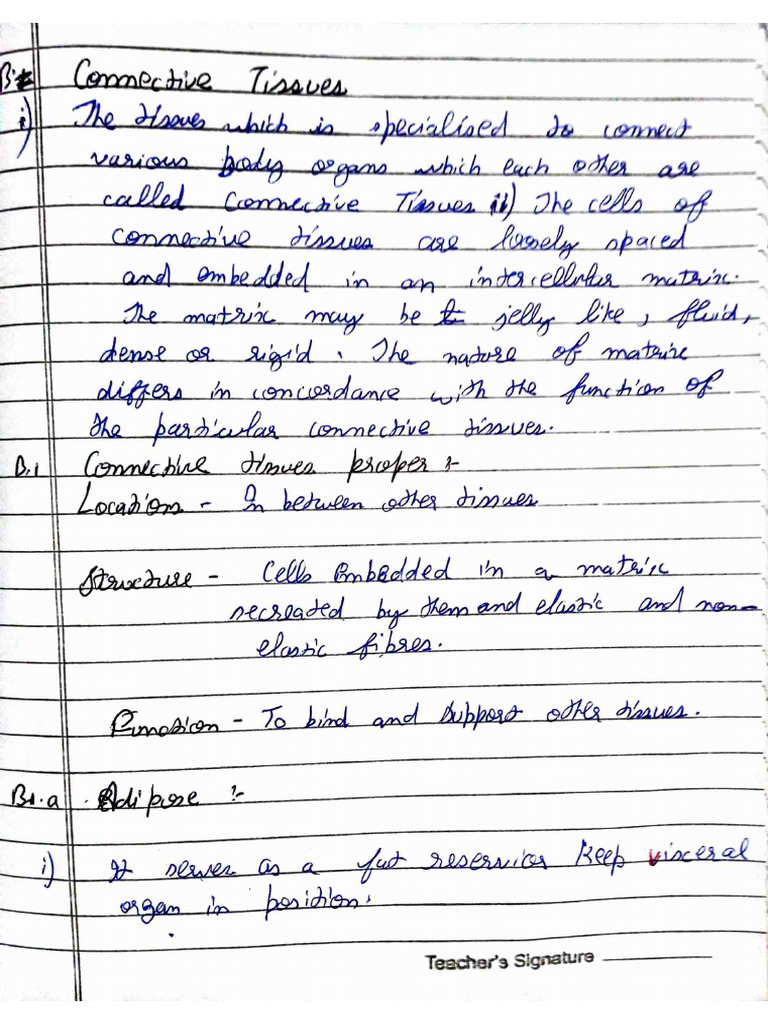 B:- Connective Tissues
i) The tissues which is specialised to connect
various body organs which each other are
called Connective Tissues ii) The cells of
connective tissues are loosely spaced
and embedded in an intercellular matrix.
The matrix may be jelly like, fluid,
dense or rigid. The nature of matrix
differs in concordance with the function of
the particular connective tissues.
B.1 Connective tissues proper :-
Location - In between other tissues
Structure - Cells Embedded in a matrix
secreated by them and elastic and non-
elastic fibres.
Function - To bind and support other tissues.
B1.a Adipose :-
i) It serves as a fat reservior Keep visceral
organ in position.
Teacher's Signature